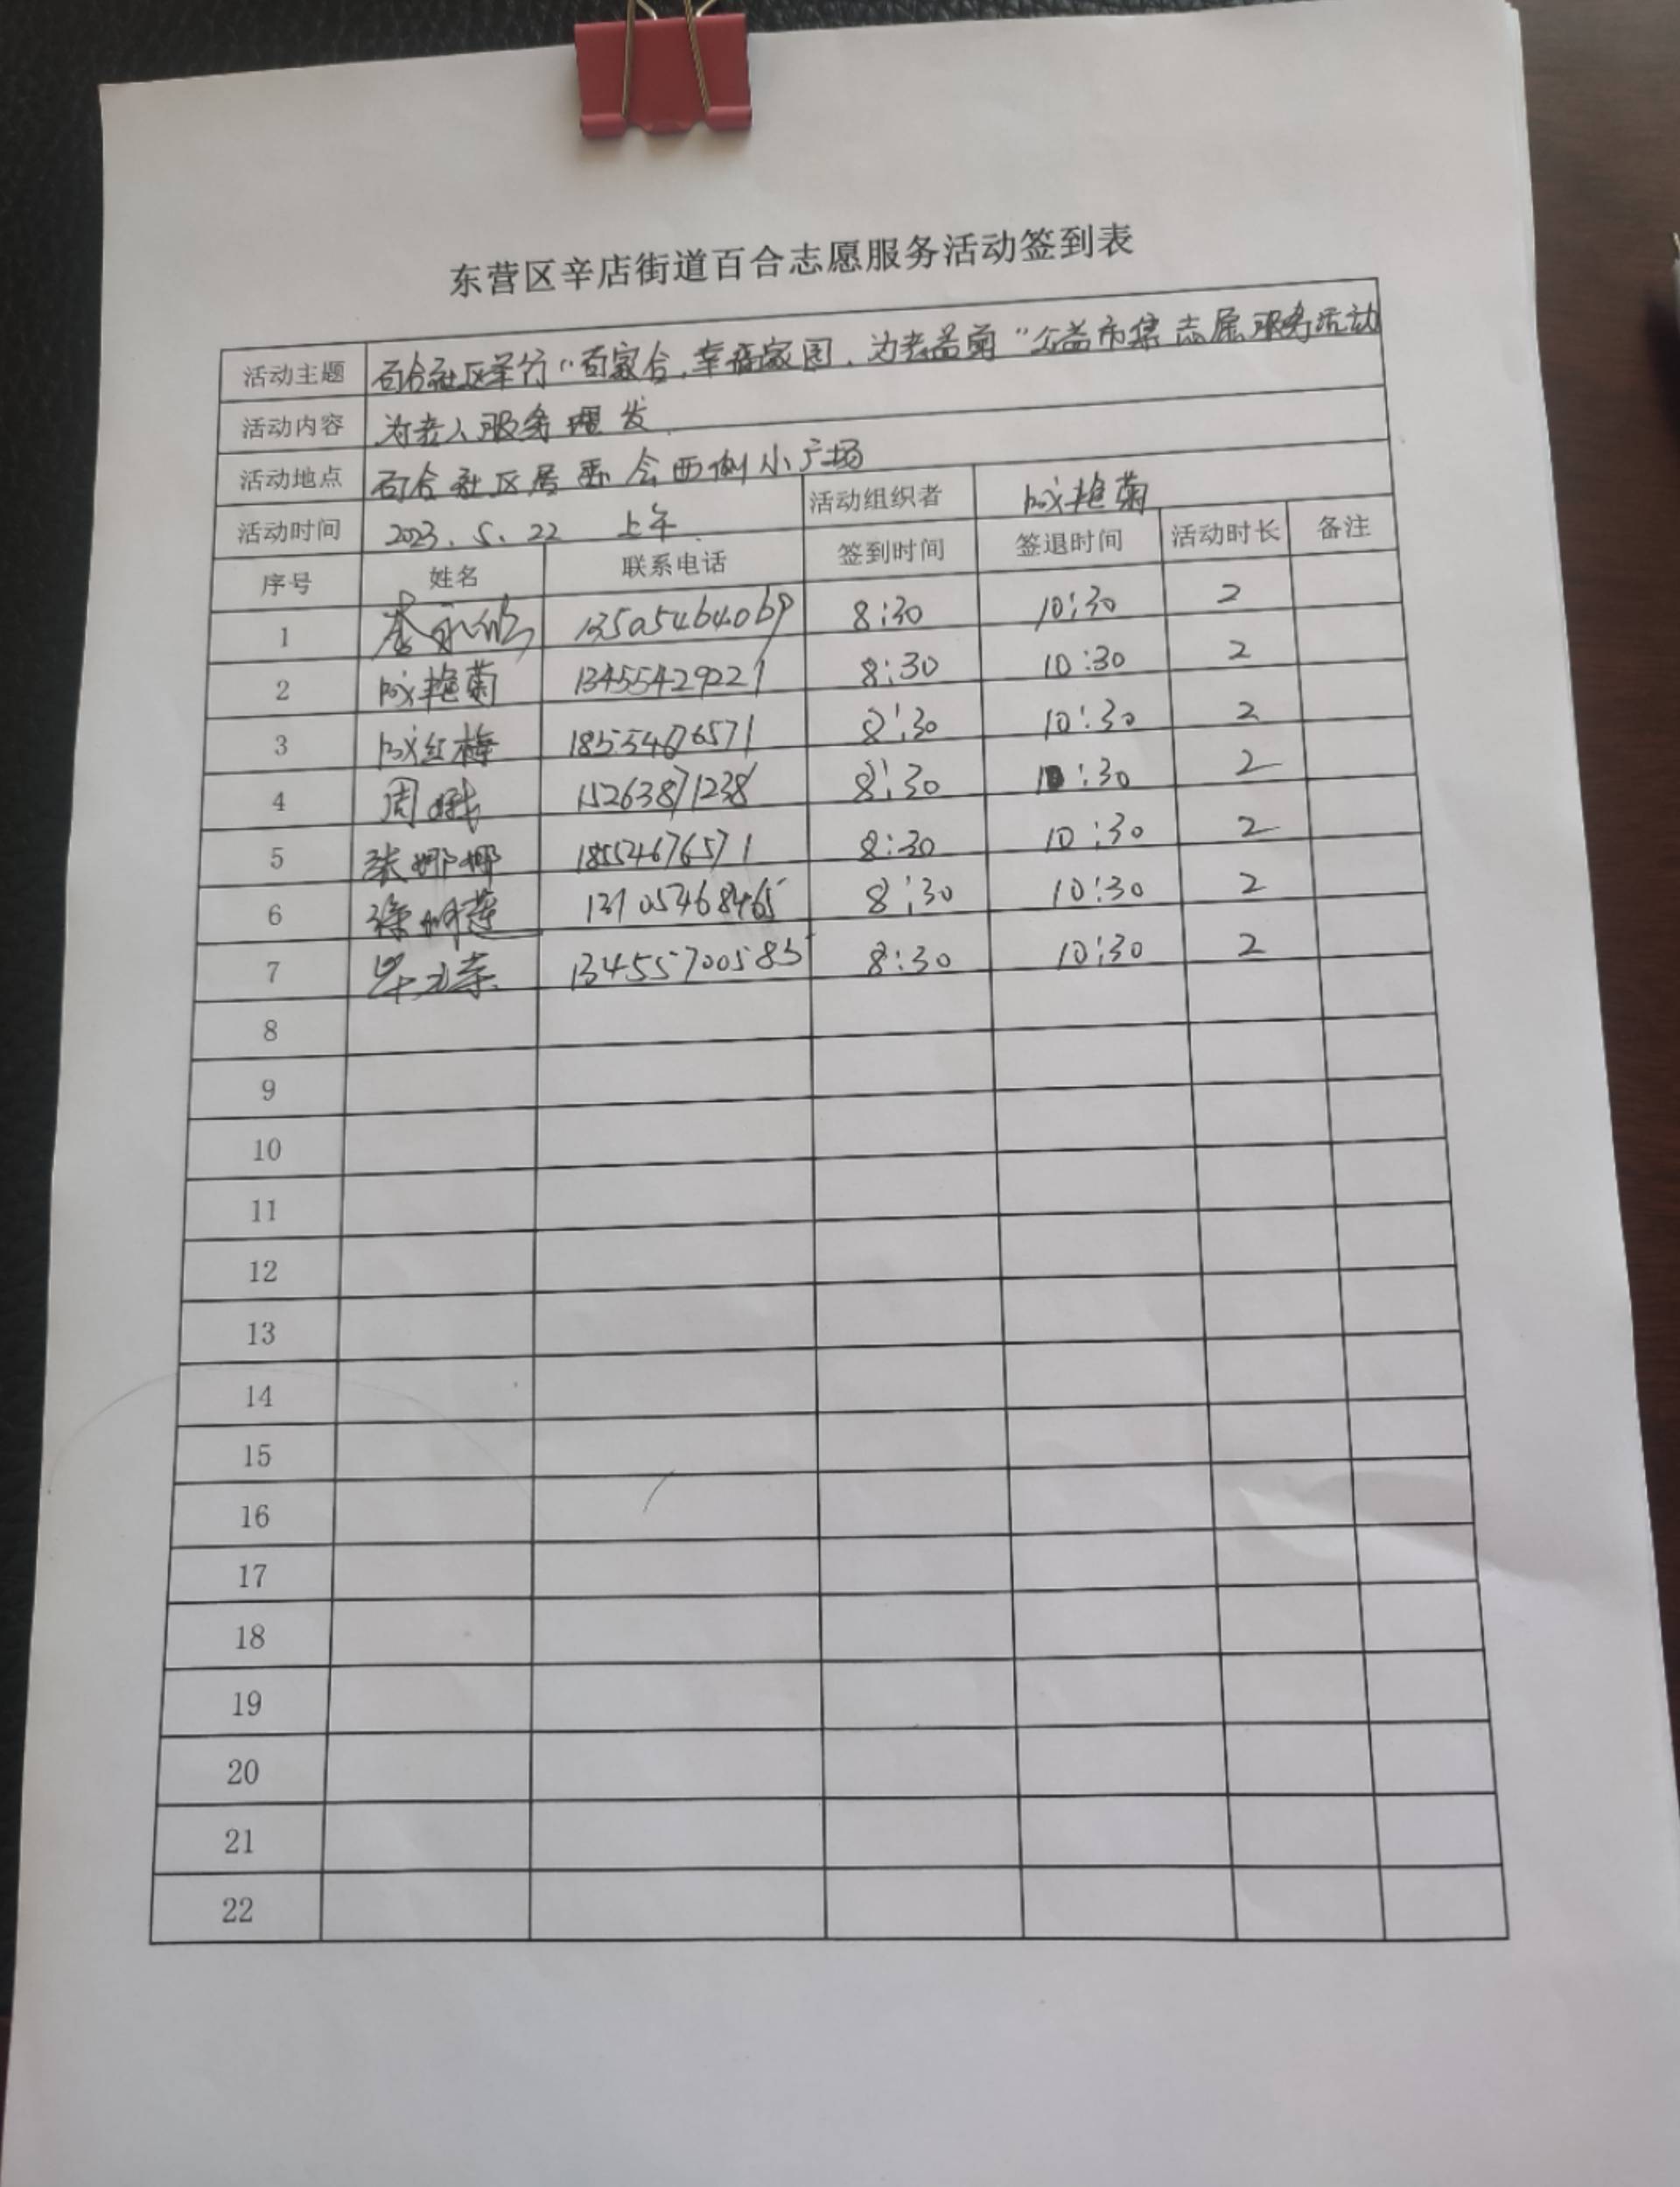 东营区辛店街道百合志愿服务活动签到表
活动主题 百合社区举行“百家合,幸福家园,为老益剪”公益市集志愿服务活动
活动内容 为老人服务理发
活动地点 百合社区居委会西侧小广场
活动时间 2023.5.22 上午 活动组织者 艳菊
序号 姓名 联系电话 签到时间 签退时间 活动时长 备注
1 李永 13505464069 8:30 10:30 2
2 艳菊 13455429221 8:30 10:30 2
3 红梅 18554676571 8:30 10:30 2
4 周 15263871238 8:30 10:30 2
5 张娜娜 18552676571 8:30 10:30 2
6 徐明莲 8:30 10:30 2
7 8:30 10:30 2
8
9
10
11
12
13
14
15
16
17
18
19
20
21
22